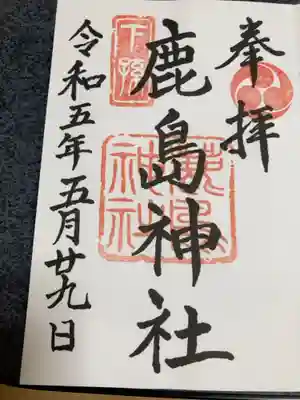 奉拝
下孫
鹿島神社
鹿島神社
令和五年五月廿九日